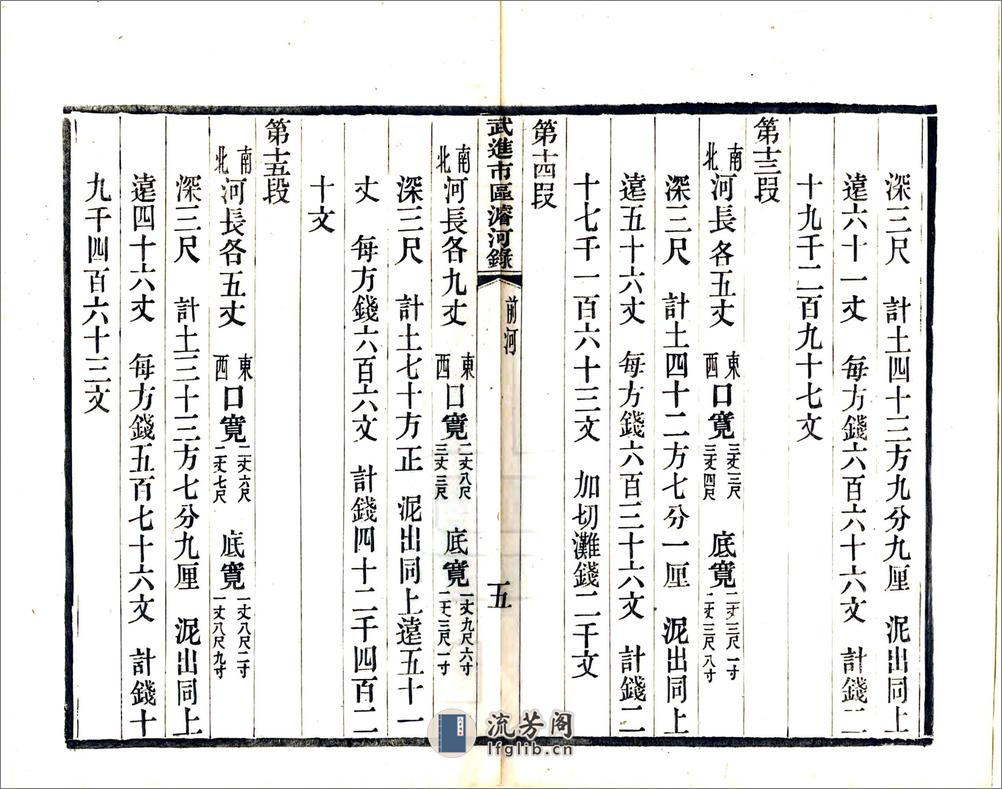 深三尺　計土四十三方九分九厘　泥出同上
遠六十一丈　每方錢六百六十六文　計錢二
十九千二百九十七文
第十三段
南北河長各五丈　東西口寬三丈三尺三丈四尺　底寬二丈三尺一寸二丈三尺八寸
深三尺　計土四十二方七分一厘　泥出同上
遠五十六丈　每方錢六百三十六文　計錢二
十七千一百六十三文　加切灘錢二千文
第十四段
武進市區濬河錄
前河
五
南北河長各九丈　東西口寬二丈八尺三丈三尺　底寬一丈九尺六寸二丈三尺一寸
深三尺　計土七十方正　泥出同上遠五十一
丈　每方錢六百六文　計錢四十二千四百二
十文
第十五段
南北河長各五丈　東西口寬二丈六尺二丈七尺　底寬一丈八尺二寸一丈八尺九寸
深三尺　計土三十三方七分九厘　泥出同上
遠四十六丈　每方錢五百七十六文　計錢十
九千四百六十三文
流芳阁
lfglib.cn